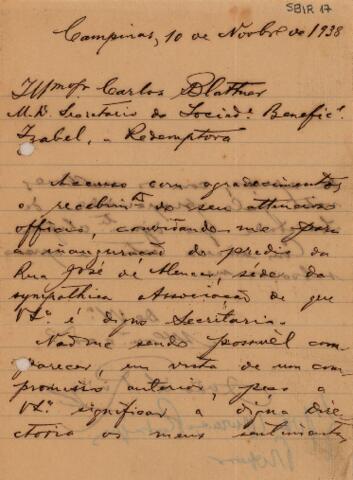 SBIR 17
Campinas, 10 de Novbro de 1938
Illmo Sr Carlos Blattner
M.D. Secretario da Sociade. Beneficte.
Izabel, a Redemptora
Accuso com agradecimentos
o recebimto do seu attencioso
officio, convidando-me para
a inauguração do predio da
Rua José de Alencar, séde da
sympathica Associação de que
VSa é digno Secretario.
Não me sendo possivel com-
parecer, em vista de um com-
promisso anterior, peço a
VSa significar a digna dire-
ctoria os meus sentimentos